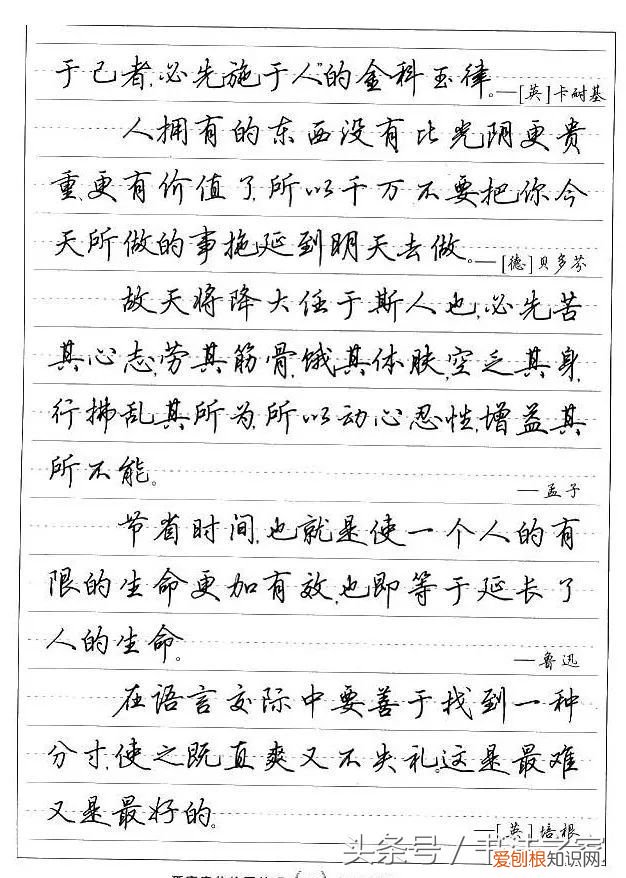 于己者，必先施于人”的金科玉律。—[英]卡耐基
人拥有的东西没有比光阴更贵
重，更有价值了，所以千万不要把你今
天所做的事拖延到明天去做。—[德]贝多芬
故天将降大任于斯人也，必先苦
其心志，劳其筋骨，饿其体肤，空乏其身，
行拂乱其所为，所以动心忍性，增益其
所不能。
—孟子
节省时间，也就是使一个人的有
限的生命更加有效，也即等于延长了
人的生命。
—鲁迅
在语言交际中要善于找到一种
分寸，使之既直爽又不失礼。这是最难
又是最好的。
—[英]培根
头条号／书法之家
爱刨根知识网